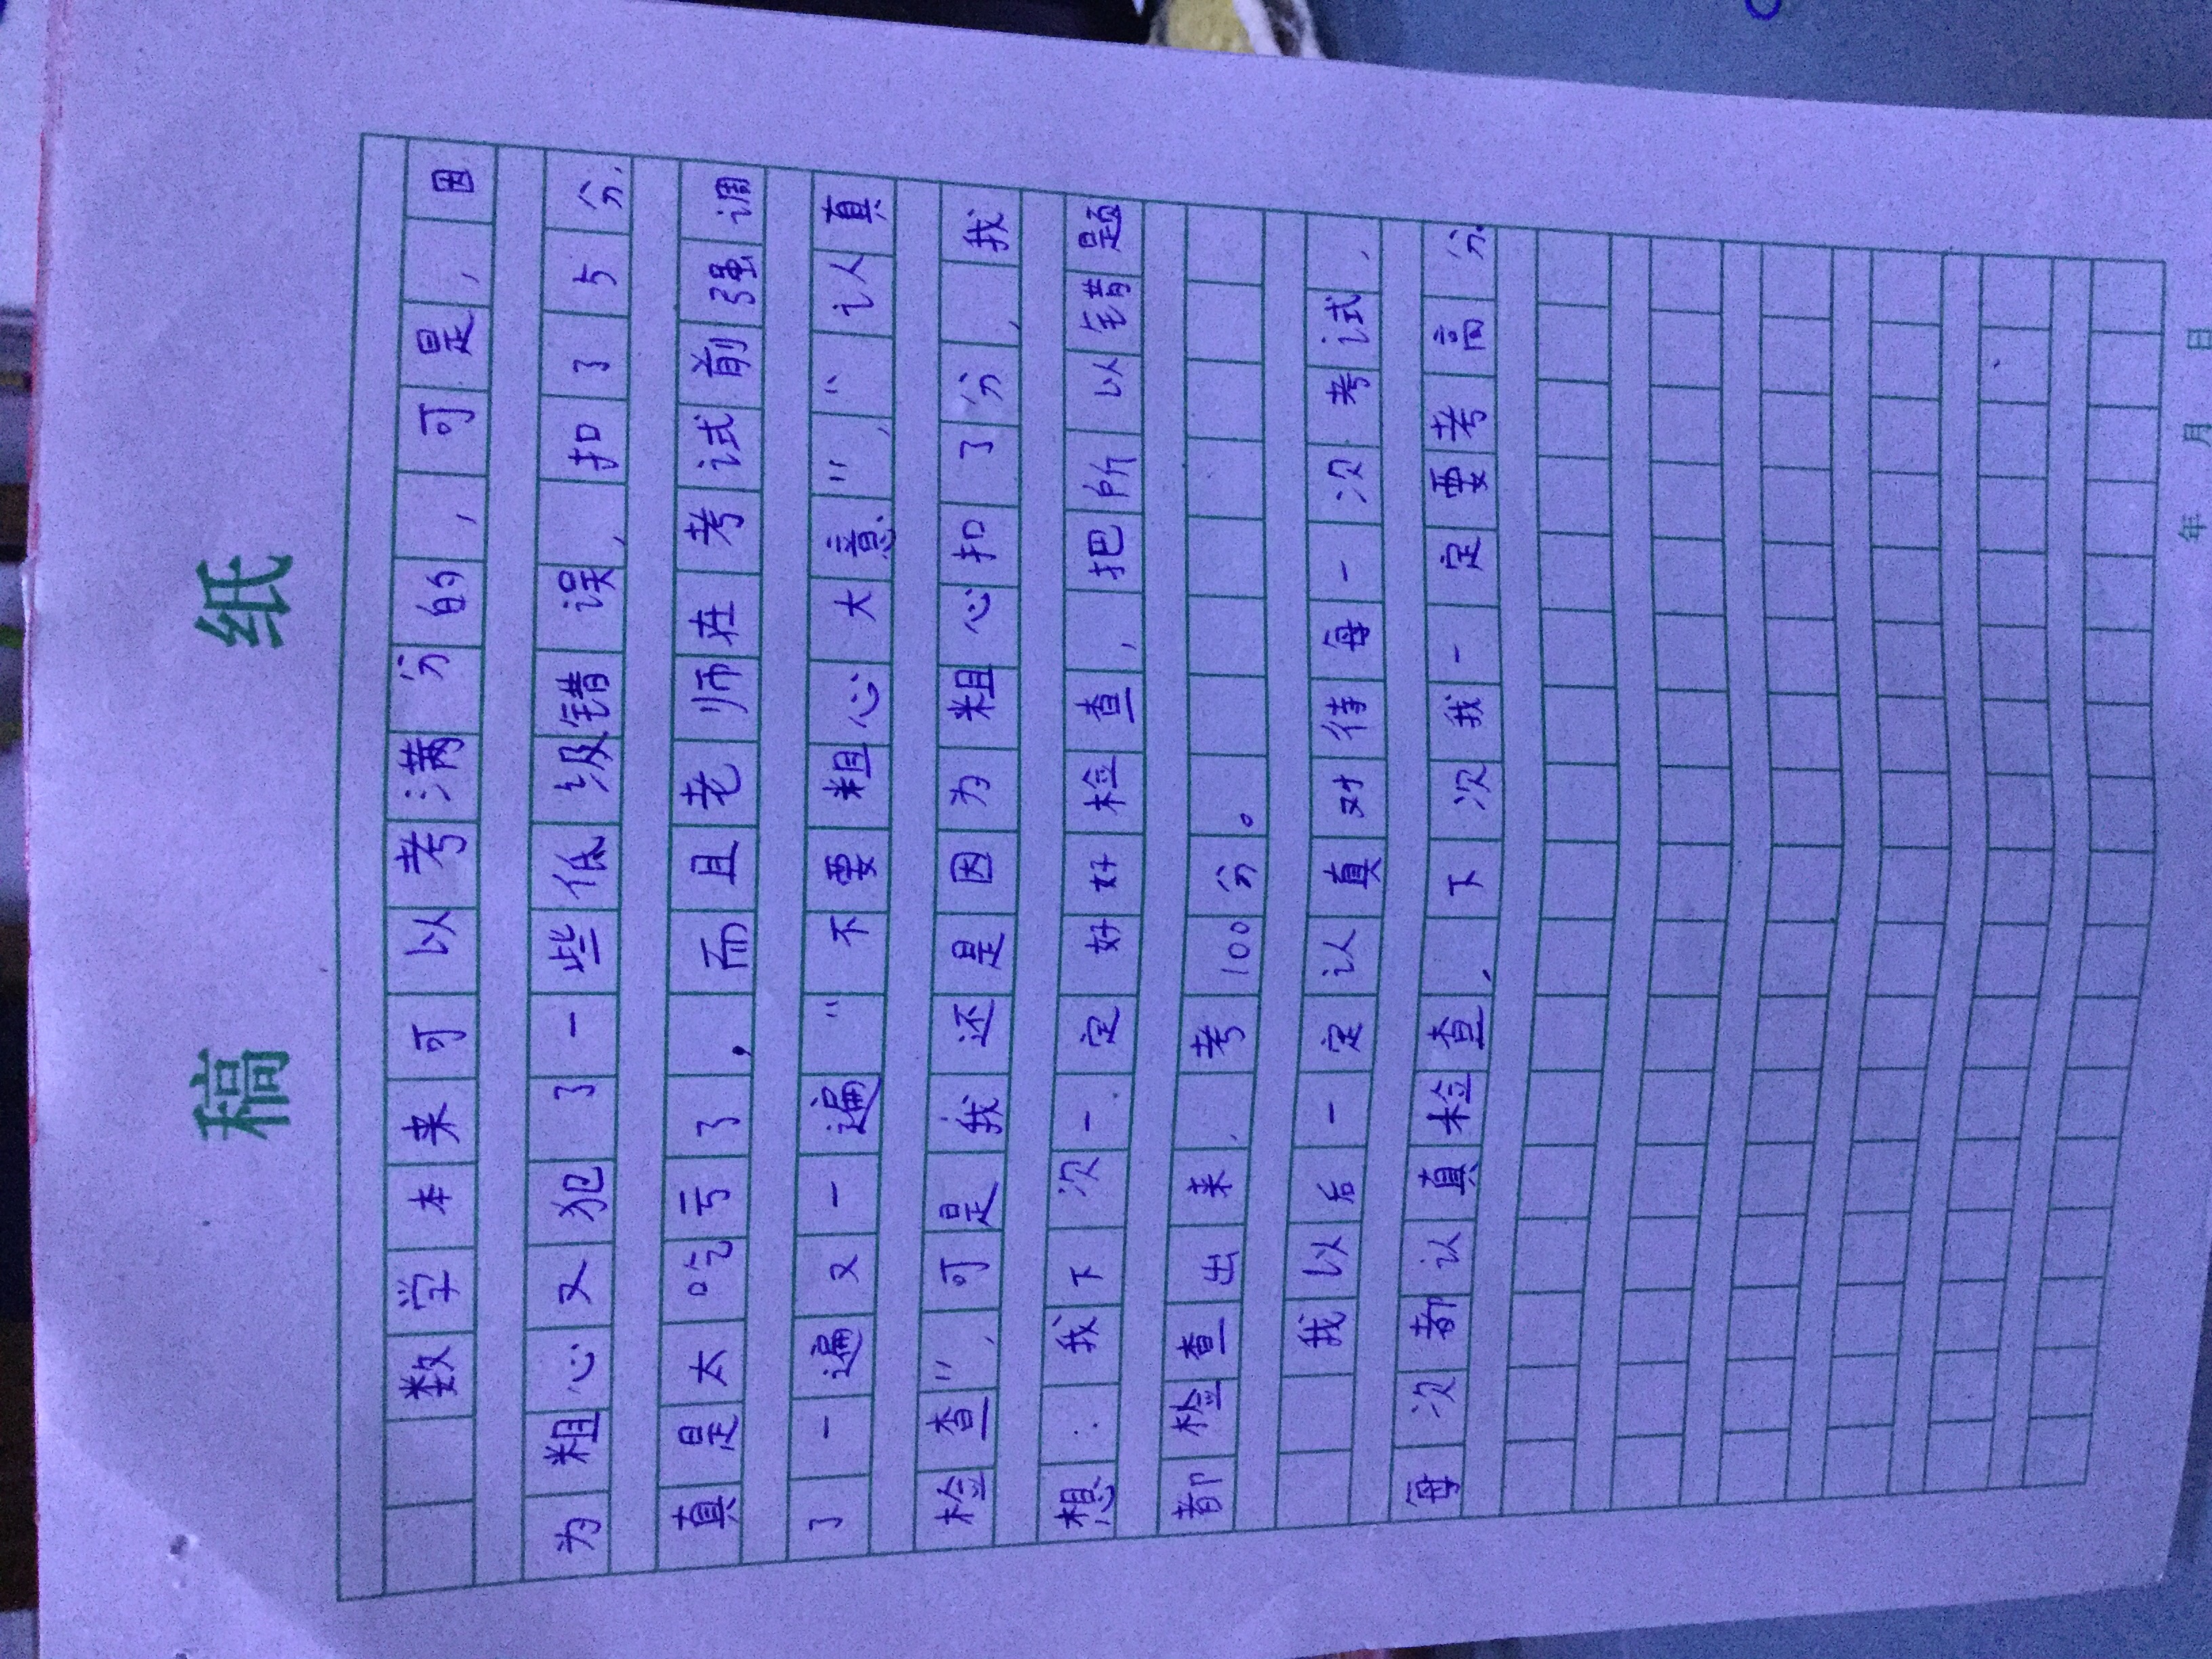 稿 纸
数学本来可以考满分的，可是，因
为粗心又犯了一些低级错误，扣了5分，
真是太吃亏了，而且老师在考试前强调
了一遍又一遍“不要粗心大意”，“认真
检查”，可是我还是因为粗心扣了分，我
想，我下次一定好好检查，把所以错题
都检查出来，考100分。
我以后一定认真对待每一次考试，
每次都认真检查，下次我一定要考高分.
年 月 日